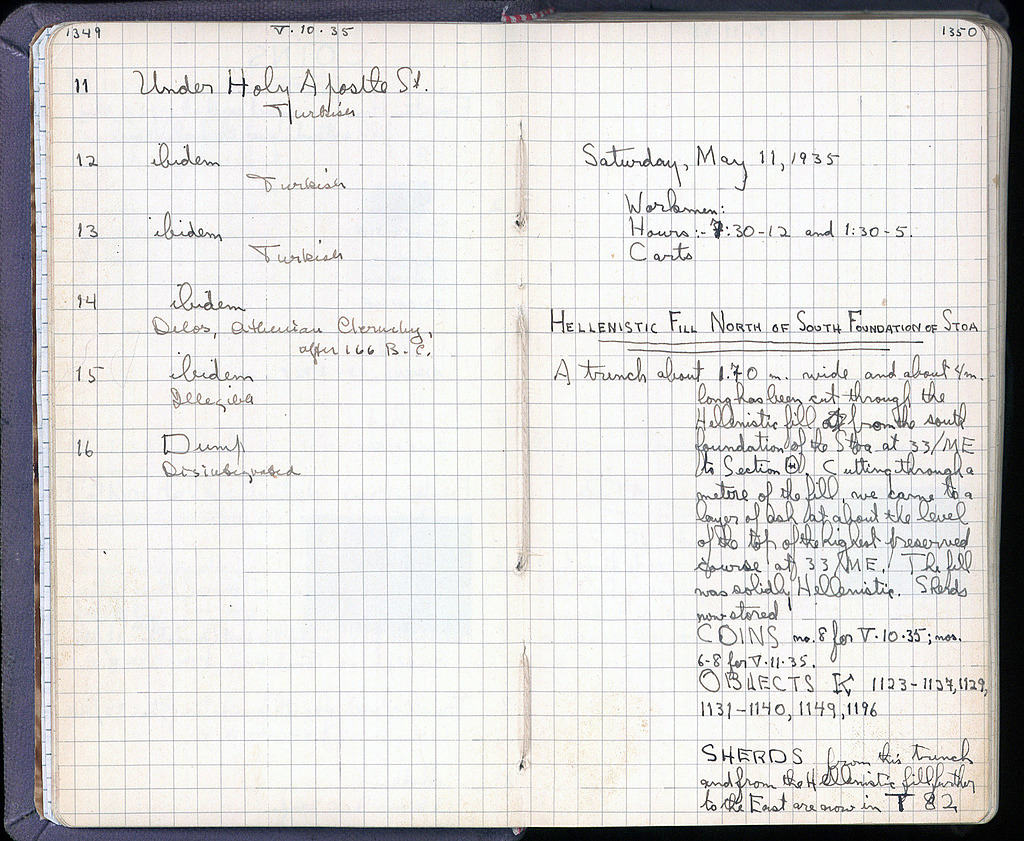 1349
V·10·35
11 Under Holy Apostle St.
Turkish
12 ibidem
Turkish
13 ibidem
Turkish
14 ibidem
Delos, Athenian Cleruchy,
after 166 B.C.
15 ibidem
Illegible
16 Dump
Disintegrated
1350
Saturday, May 11, 1935
Workmen:
Hours:- 7:30-12 and 1:30-5.
Carts
HELLENISTIC FILL NORTH OF SOUTH FOUNDATION OF STOA
A trench about 1.70 m. wide and about 4m.
long has been cut through the
Hellenistic fill from the south
foundation of the Stoa at 33/ME
to Section Θ. Cutting through a
metre of the fill, we came to a
layer of ash at about the level
of the top of the highest preserved
course at 33/ME. The fill
was solidly Hellenistic. Sherds
now stored
COINS no. 8 for V·10·35; nos.
6-8 for V·11·35.
OBJECTS K 1123-1127, 1129,
1131-1140, 1149, 1196
SHERDS from this trench
and from the Hellenistic fill further
to the East are now in T 82